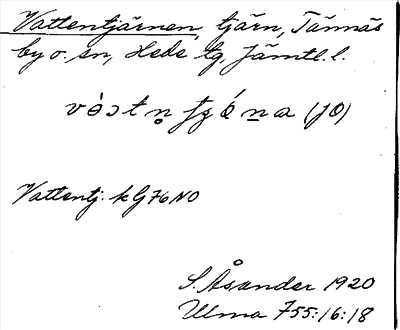 Vattentjärnen, tjärn, Tännäs
by o. sn, Hede tg, Jämtl. l.
(JO)
Vattentj. k G76 NO
S. Åsander 1920
Ulma 755:16:18